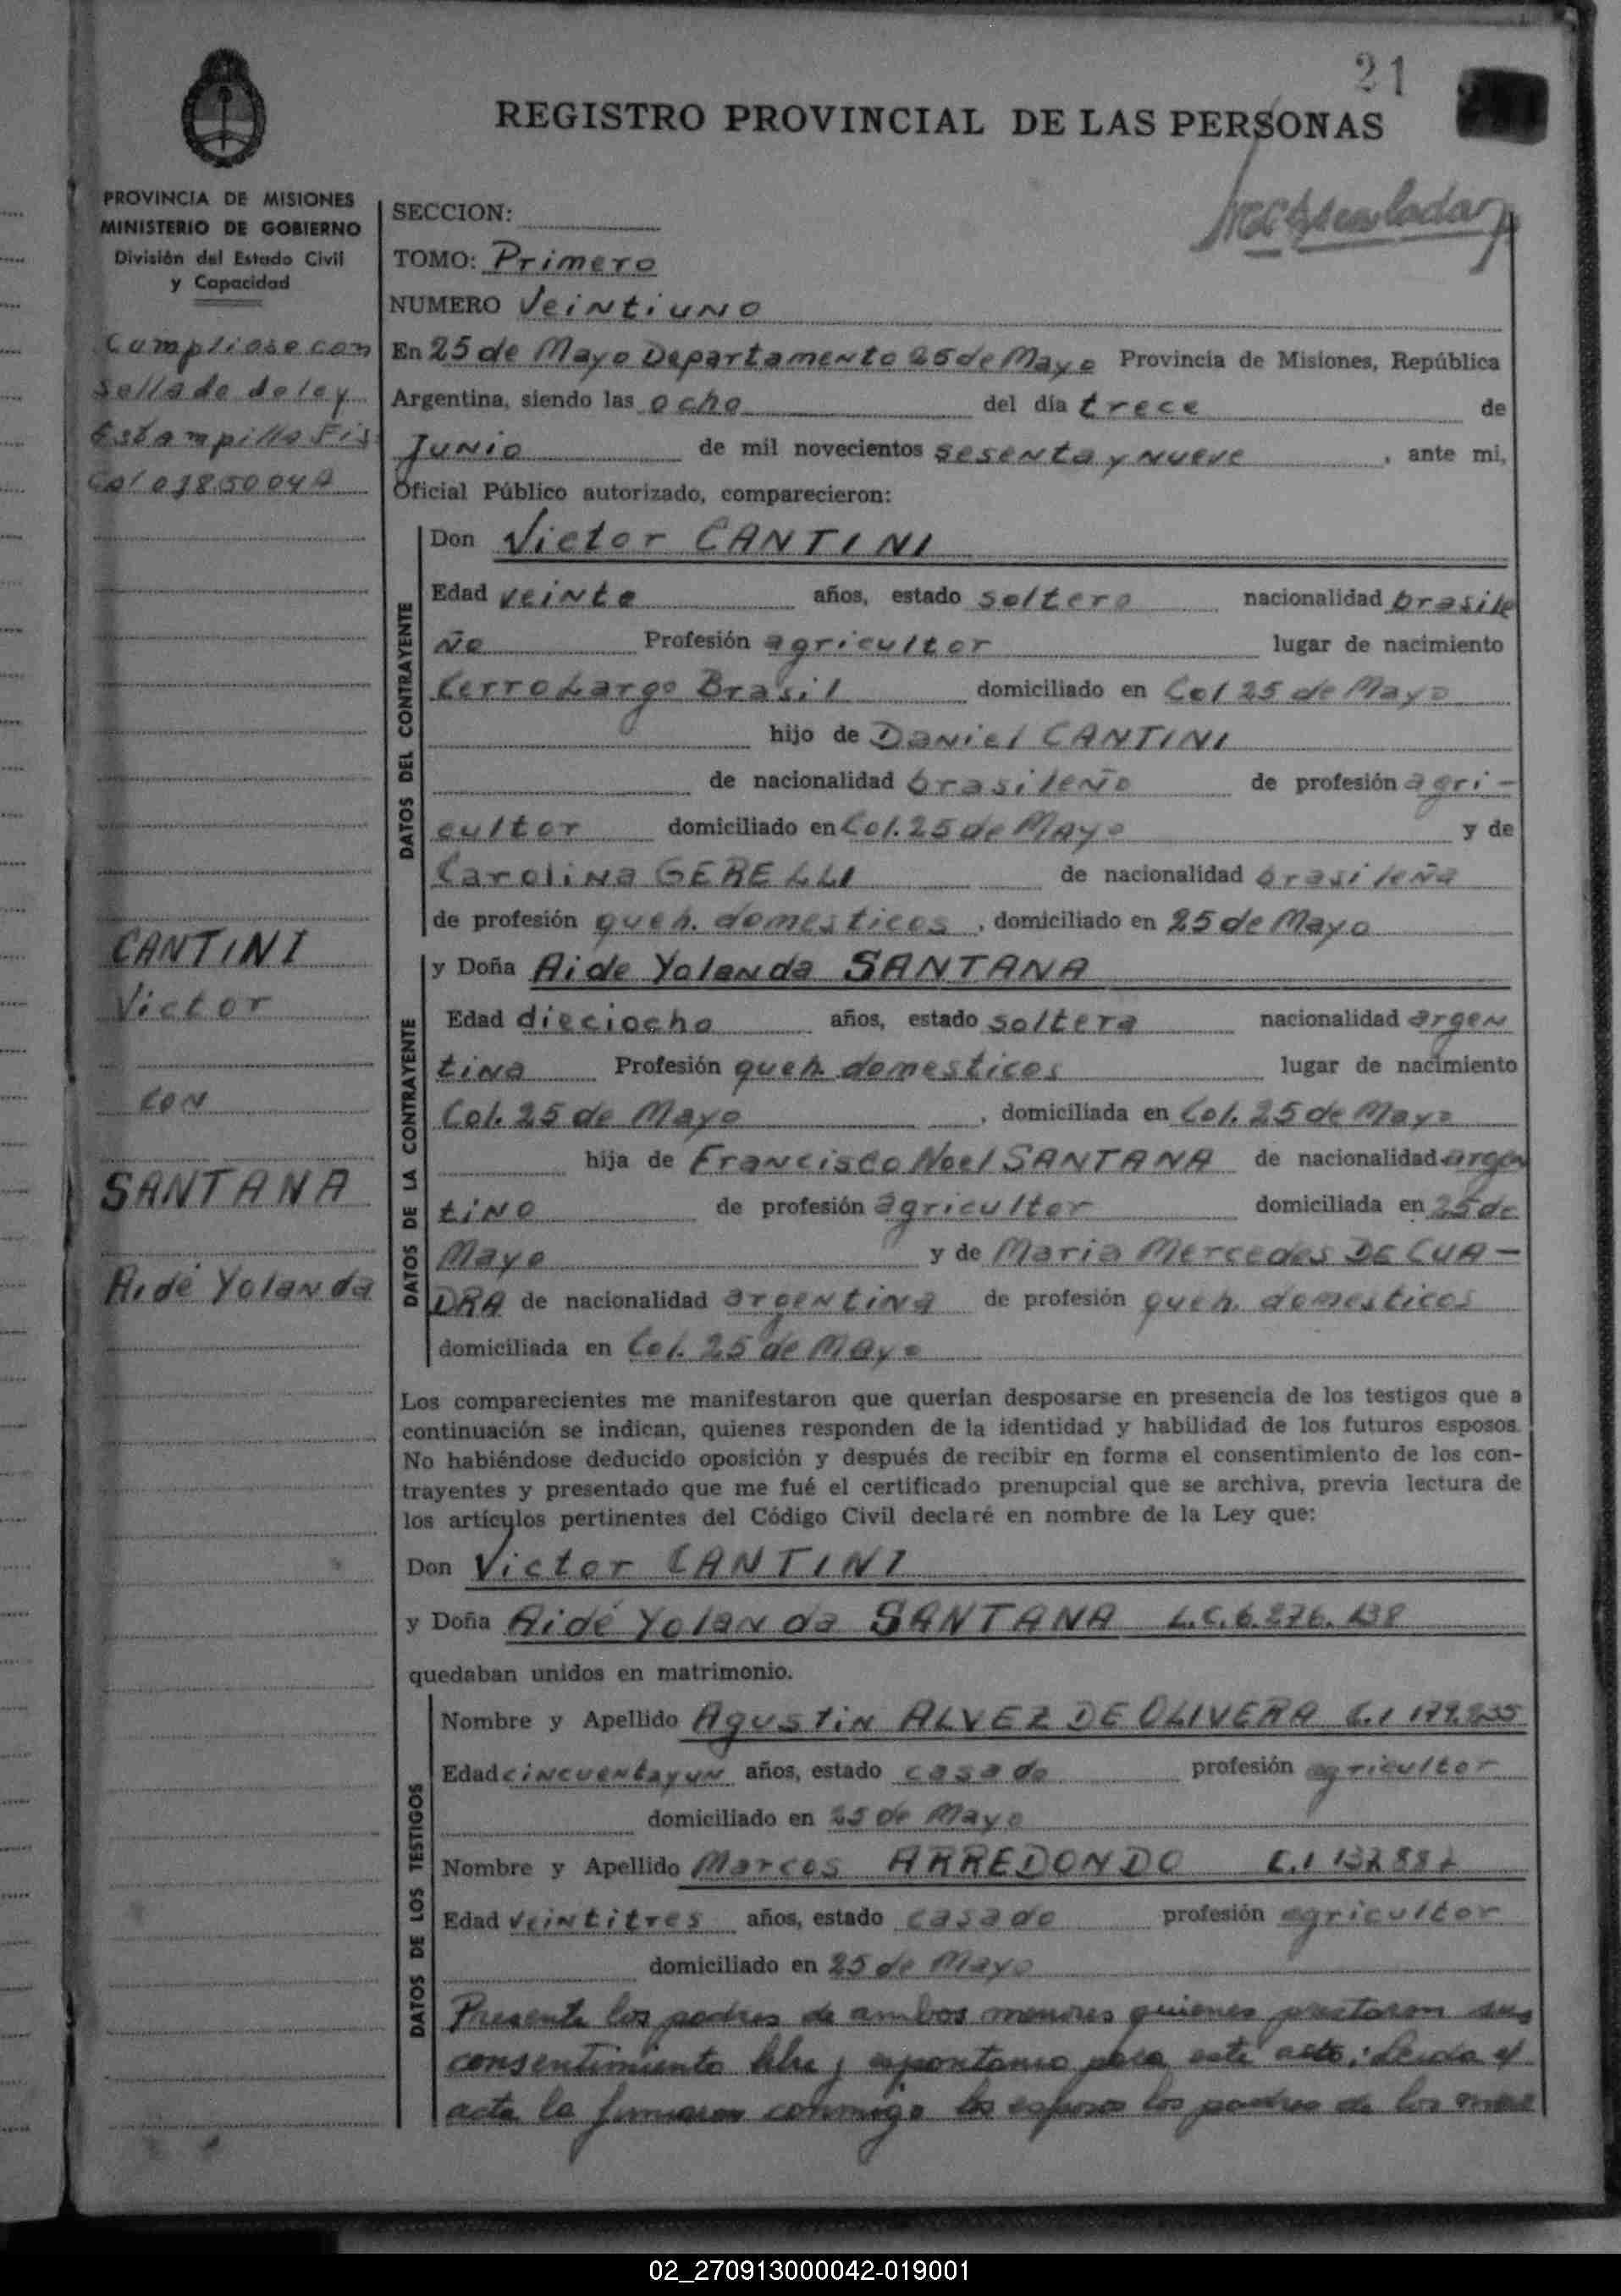 21
REGISTRO PROVINCIAL DE LAS PERSONAS
PROVINCIA DE MISIONES
MINISTERIO DE GOBIERNO
División del Estado Civil
y Capacidad
Cumpliose con
Sellado de ley
Estampilla Fis
CANTINI
Victor
con
SANTANA
Aidé Yolanda
SECCION:
TOMO: Primero
NUMERO Veintiuno
En 25 de Mayo Departamento 25 de Mayo Provincia de Misiones, República
Argentina, siendo las ocho del día trece de
Junio de mil novecientos sesenta y nueve, ante mi,
Oficial Público autorizado, comparecieron:
DATOS DEL CONTRAYENTE
Don Victor CANTINI
Edad veinte años, estado soltero nacionalidad brasile
ño Profesión agricultor lugar de nacimiento
Cerro Largo Brasil domiciliado en Col 25 de Mayo
hijo de Daniel CANTINI
de nacionalidad brasileño de profesión agri-
cultor domiciliado en Col. 25 de Mayo y de
Carolina GERELLI de nacionalidad brasileña
de profesión queh. domesticos, domiciliado en 25 de Mayo
DATOS DE LA CONTRAYENTE
y Doña Aide Yolanda SANTANA
Edad dieciocho años, estado soltera nacionalidad argen
tina Profesión queh. domesticos lugar de nacimiento
Col. 25 de Mayo, domiciliada en Col. 25 de Mayo
hija de Francisco Noel SANTANA de nacionalidad argen
tino de profesión agricultor domiciliada en 25 de
Mayo y de Maria Mercedes DE CUA-
DRA de nacionalidad argentina de profesión queh. domesticos
domiciliada en Col. 25 de Mayo
Los comparecientes me manifestaron que querían desposarse en presencia de los testigos que a
continuación se indican, quienes responden de la identidad y habilidad de los futuros esposos.
No habiéndose deducido oposición y después de recibir en forma el consentimiento de los con-
trayentes y presentado que me fué el certificado prenupcial que se archiva, previa lectura de
los artículos pertinentes del Código Civil declaré en nombre de la Ley que:
Don Victor CANTINI
y Doña Aidé Yolanda SANTANA L.C.
quedaban unidos en matrimonio.
DATOS DE LOS TESTIGOS
Nombre y Apellido Agustin ALVEZ DE OLIVERA C.I
Edad cincuentayun años, estado casado profesión agricultor
domiciliado en 25 de Mayo
Nombre y Apellido Marcos ARREDONDO C.I
Edad veintitres años, estado casado profesión agricultor
domiciliado en 25 de Mayo
Presente los padres de ambos menores quienes prestaron sus
consentimiento libre y espontaneo para este acto; Leida el
acta la firmaron conmigo los esposos los padres de los
02_270913000042-019001